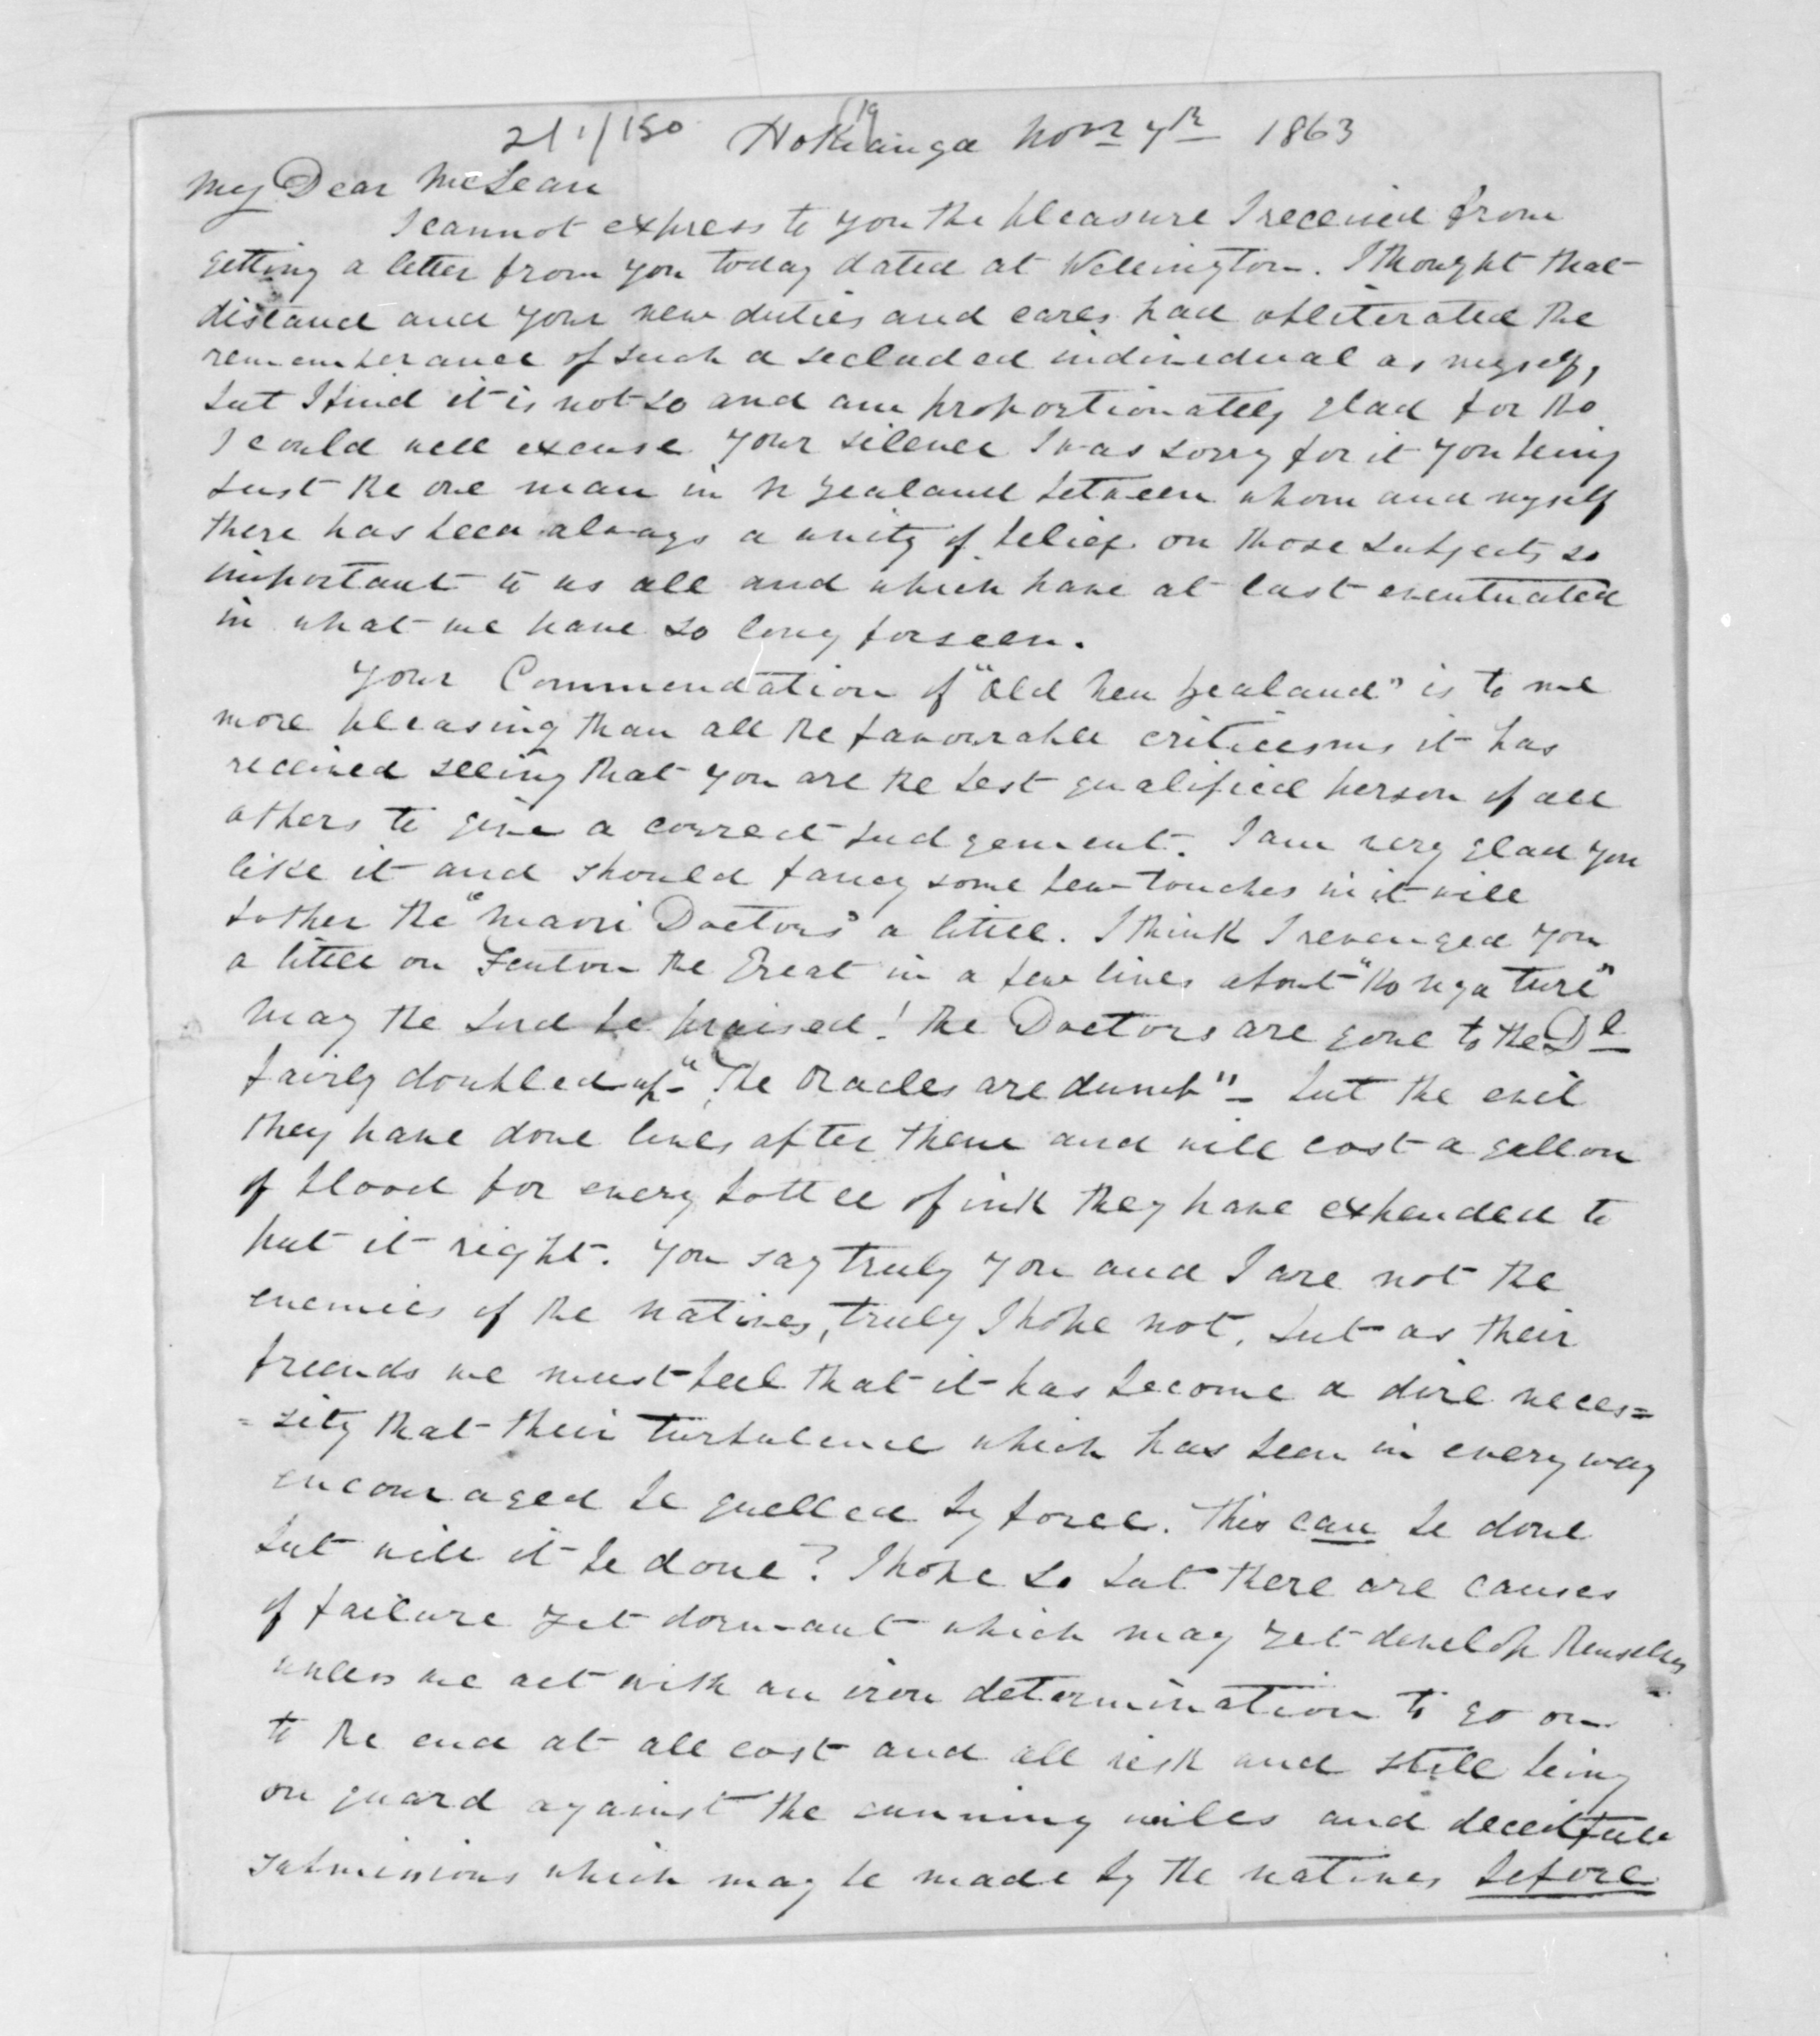 21/1/150 Hokianga Novr 7th 1863
19
My Dear McLean
I cannot express to you the pleasure I received from
getting a letter from you today dated at Wellington. I thought that
distance and your new duties and cares had obliterated the
rememberance of such a secluded individual as myself,
but I find it is not so and am proportionately glad for tho
I could well excuse your silence I was sorry for it you being
just the one man in N Zealand between whom and myself
there has been always a unity of belief on those subjects so
important to us all and which have at last eventuated
in what we have so long forseen.
Your Commendation of "Old New Zealand" is to me
more pleasing than all the favourable criticisms it has
received seeing that you are the best qualified person of all
others to give a correct judgement. I am very glad you
like it and should fancy some few touches in it will
bother the "Maori Doctors" a little. I think I revenged you
a little on Fenton the Great in a few lines about "Ko nga ture"
May the Lord be praised! the Doctors are gone to the Dl
fairly doubled up - "The Oracles are dumb" - but the evil
they have done lives after them and will cost a gallon
of blood for every bottle of ink they have expended to
put it right. You say truly you and I are not the
enemies of the natives, truly I hope not, but as their
friends we must feel that it has become a dire neces=
=sity that their turbulence which has been in every way
encouraged be quelled by force. This can be done
but will it be done? I hope so but there are causes
of failure yet dormant which may yet develop themselves
unless we act with an iron determination to go on
to the end at all cost and all risk and still being
on guard against the cunning wiles and deceitfull
submissions which may be made by the natives before